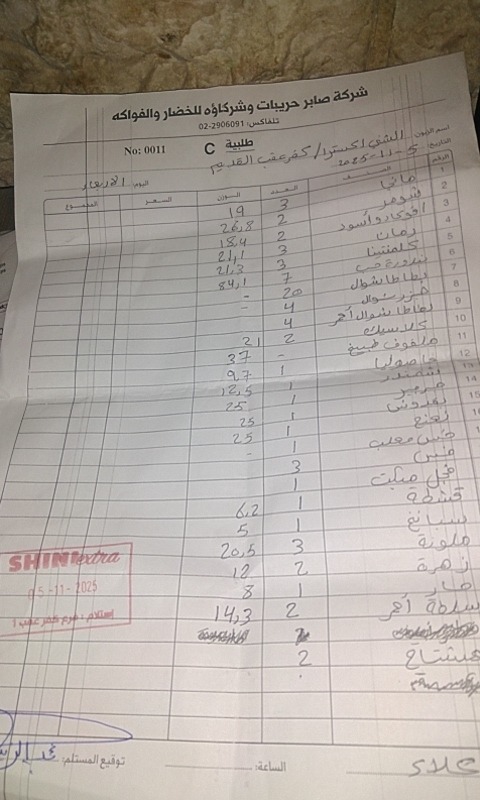 شركة صابر حريبات وشركاؤه للخضار والفواكه
تلفاكس: 02-2906091
No: 0011 طلبية C
اسم الزبون: الشني اكسترا / كفر عقب القديم
اليوم: الأربعاء التاريخ: 5-11-2025
الرقم الصنف العدد الوزن السعر المجموع
1 مانجا 3 19
2 شومر 2 26,8
3 افوكادو أسود 2 18,4
4 رمان 3 21,1
5 كلمنتينا 3 21,3
6 بندورة حب 7 84,1
7 بطاطا شوال 20 -
8 جزر شوال 4 -
9 بطاطا شوال أحمر 4
10 كلاسيك 2 21
11 ملفوف طبيخ - 37
12 فاصوليا 1 9,7
13 شمندر 1 12,5
14 جرجير 1 25
15 بقدونس 1 25
نعنع 1 25
خس معلب 1 -
خس 3
فجل مبكت 1
قشطة 1 6,2
سبانخ 1 5
ملونة 3 20,5
زهرة 2 12
حار 1 8
سلطة أحمر 2 14,3
2
SHINI extra
05-11-2025
استلام: فرع كفر عقب 1
علاء
الساعة:
توقيع المستلم: